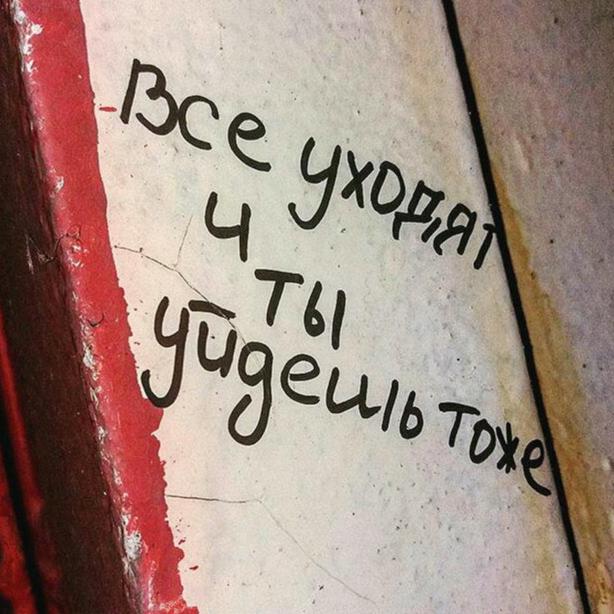 Все уходят
и
ты
уйдешь тоже